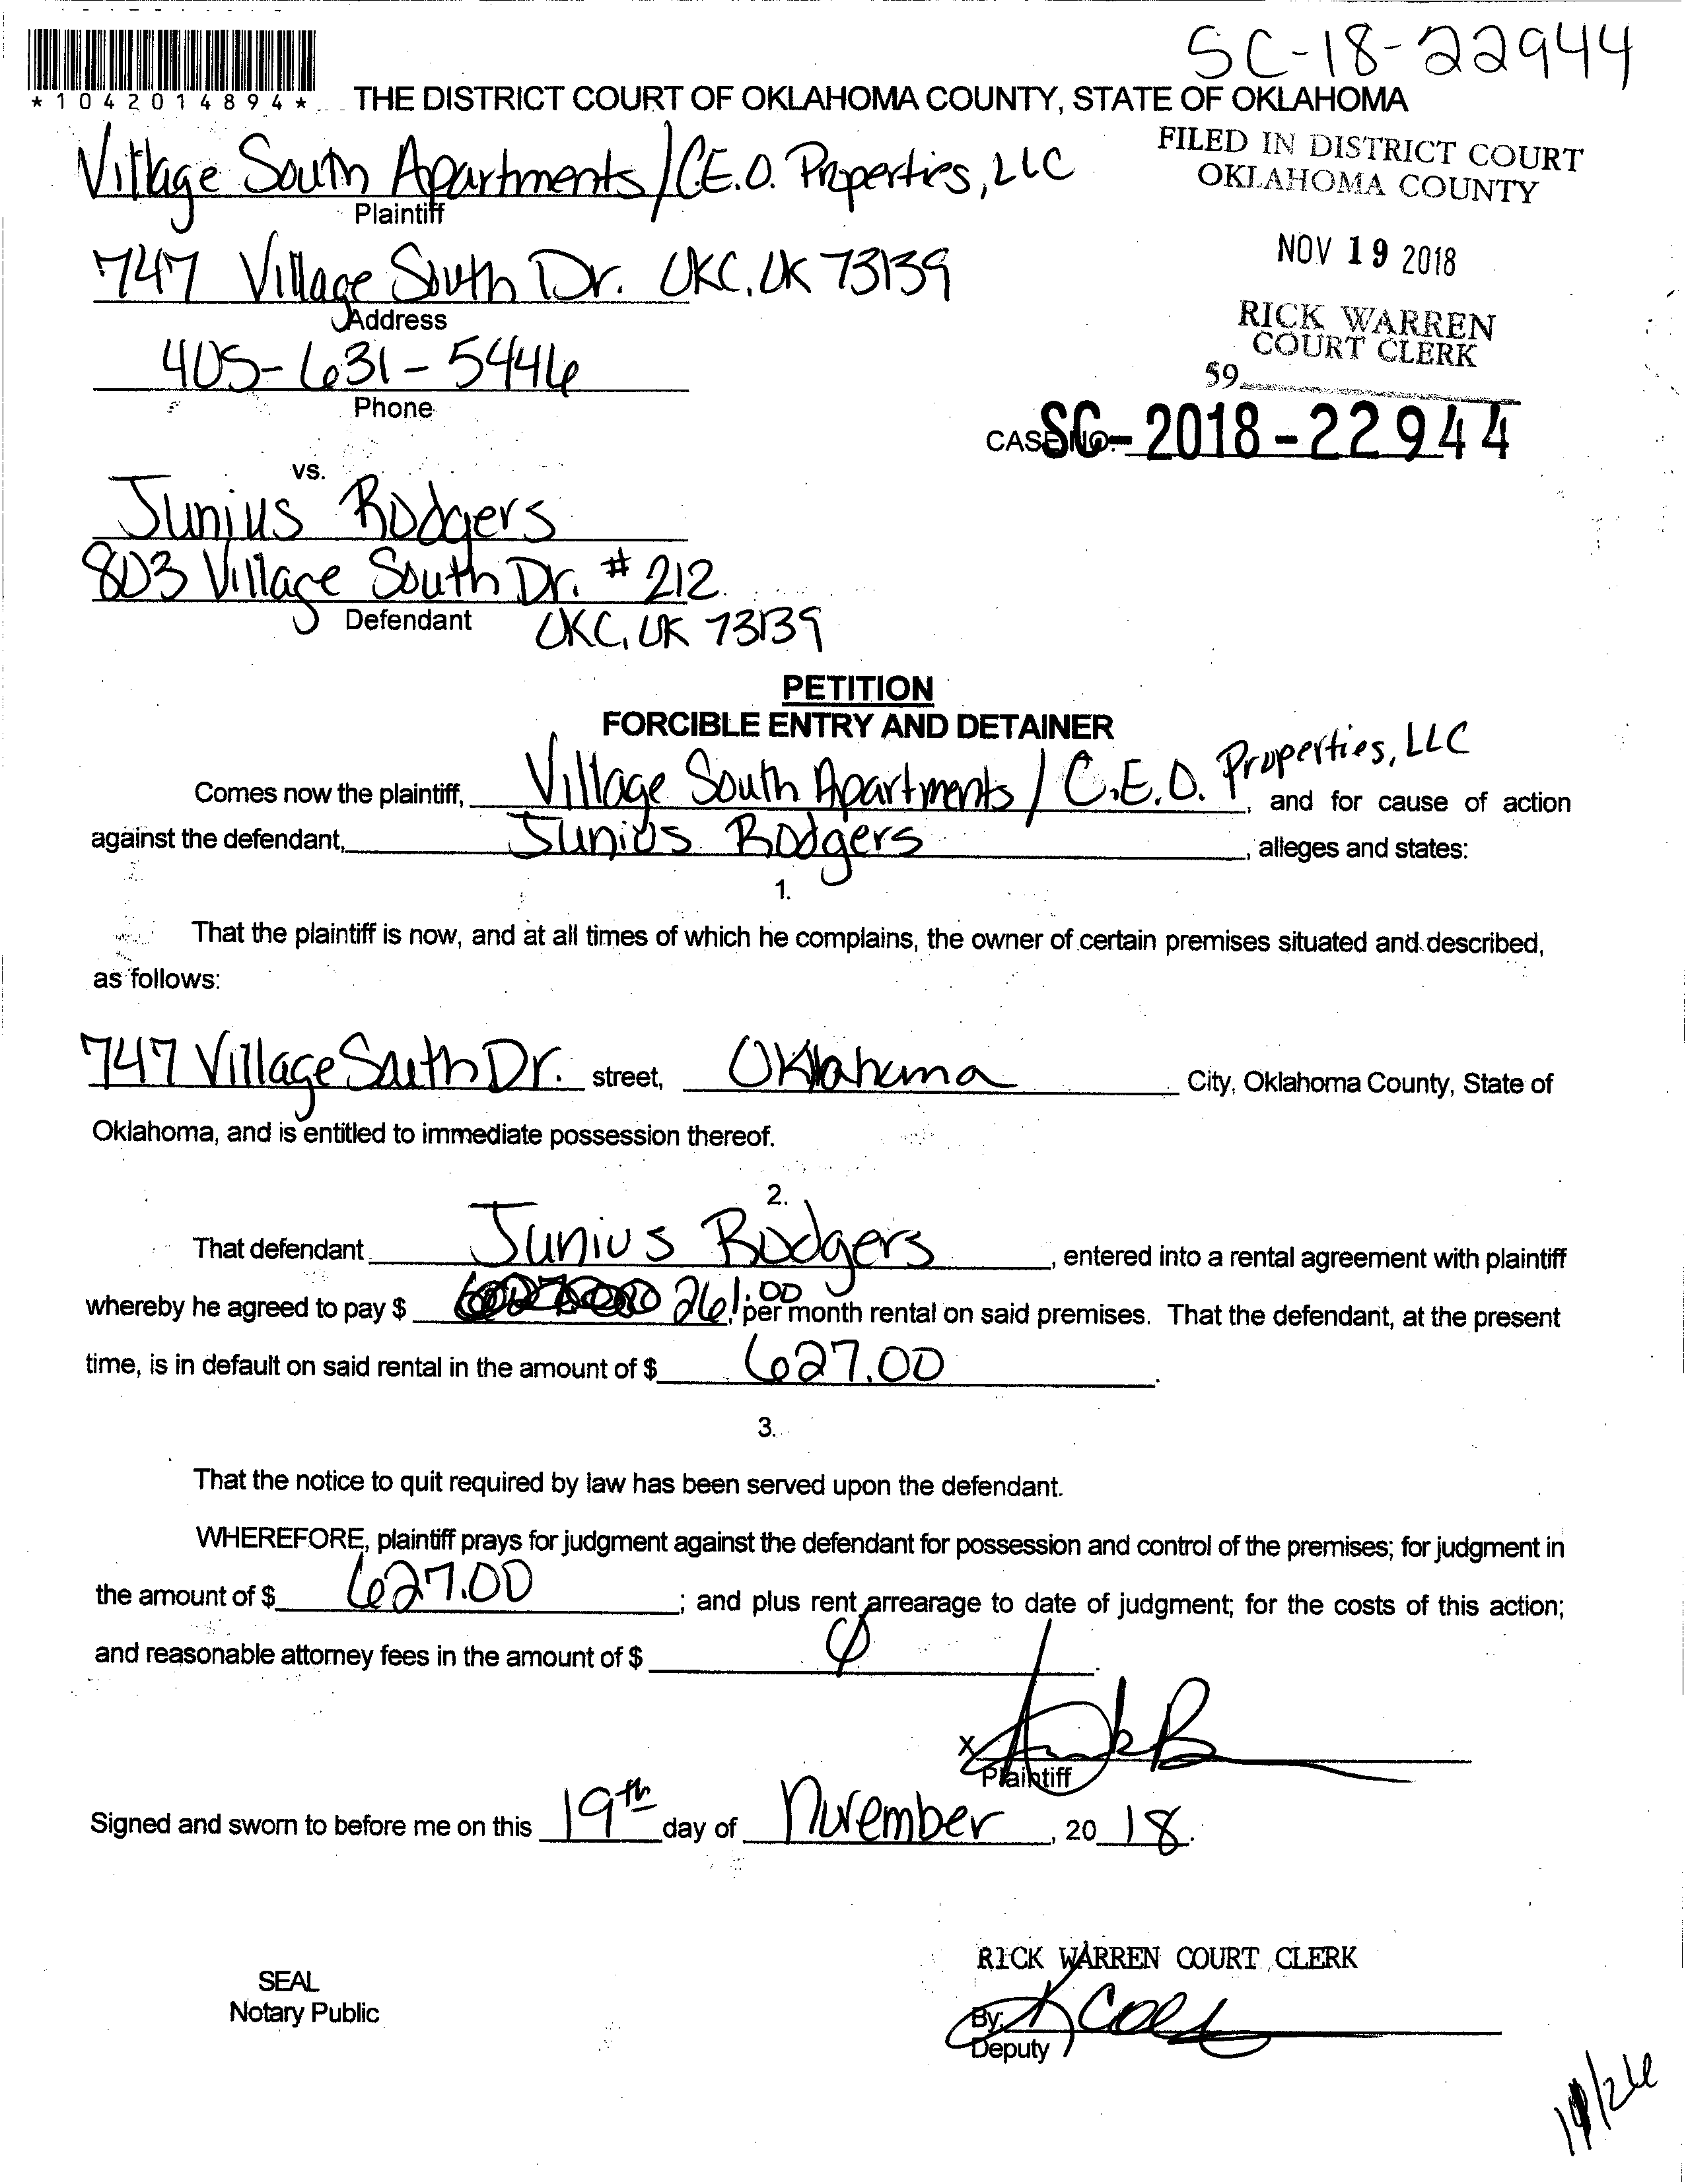 SC-18-22944
*1042014894*
THE DISTRICT COURT OF OKLAHOMA COUNTY, STATE OF OKLAHOMA
FILED IN DISTRICT COURT
OKLAHOMA COUNTY
Village South Apartments / C.E.O. Properties, LLC
Plaintiff
NOV 19 2018
747 Village South Dr. OKC, OK 73139
Address
RICK WARREN
COURT CLERK
405-631-5446
59
Phone
CASE NO. SC-2018-22944
vs.
Junius Rodgers
803 Village South Dr. #212
Defendant
OKC, OK 73139
PETITION
FORCIBLE ENTRY AND DETAINER
Comes now the plaintiff, Village South Apartments / C.E.O. Properties, LLC, and for cause of action
against the defendant, Junius Rodgers, alleges and states:
1.
That the plaintiff is now, and at all times of which he complains, the owner of certain premises situated and described,
as follows:
747 Village South Dr. street, Oklahoma City, Oklahoma County, State of
Oklahoma, and is entitled to immediate possession thereof.
2.
That defendant Junius Rodgers, entered into a rental agreement with plaintiff
whereby he agreed to pay $ 261.00, per month rental on said premises. That the defendant, at the present
time, is in default on said rental in the amount of $ 627.00.
3.
That the notice to quit required by law has been served upon the defendant.
WHEREFORE, plaintiff prays for judgment against the defendant for possession and control of the premises; for judgment in
the amount of $ 627.00; and plus rent arrearage to date of judgment; for the costs of this action;
and reasonable attorney fees in the amount of $ Ø.
X
Plaintiff
Signed and sworn to before me on this 19th day of November, 2018.
RICK WARREN COURT CLERK
SEAL
Notary Public
By:
Deputy